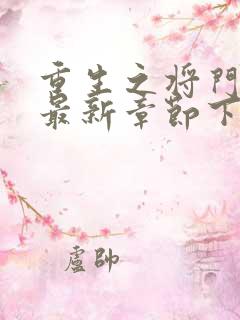 重生之将門
最新章節下
盧帥